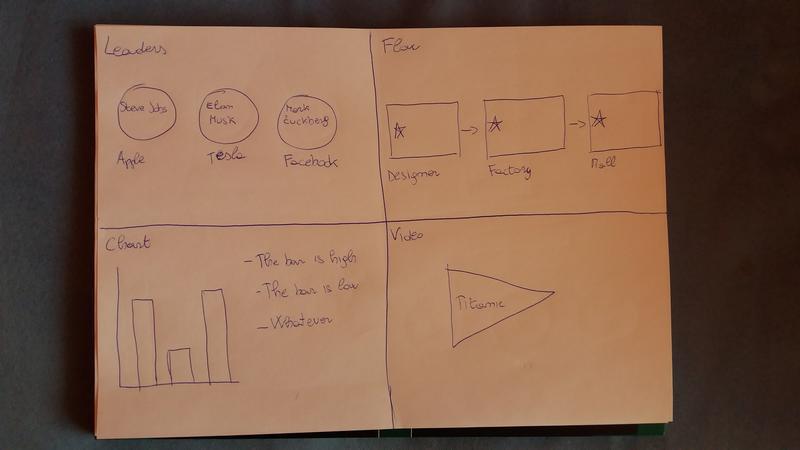 Leaders
Steve Jobs
Elon
Musk
Mark
Zuckberg
Apple
Tesla
Facebook
Flow
Designer
Factory
Mall
Chart
- The bar is high
- The bar is low
- Whatever
Video
Titanic